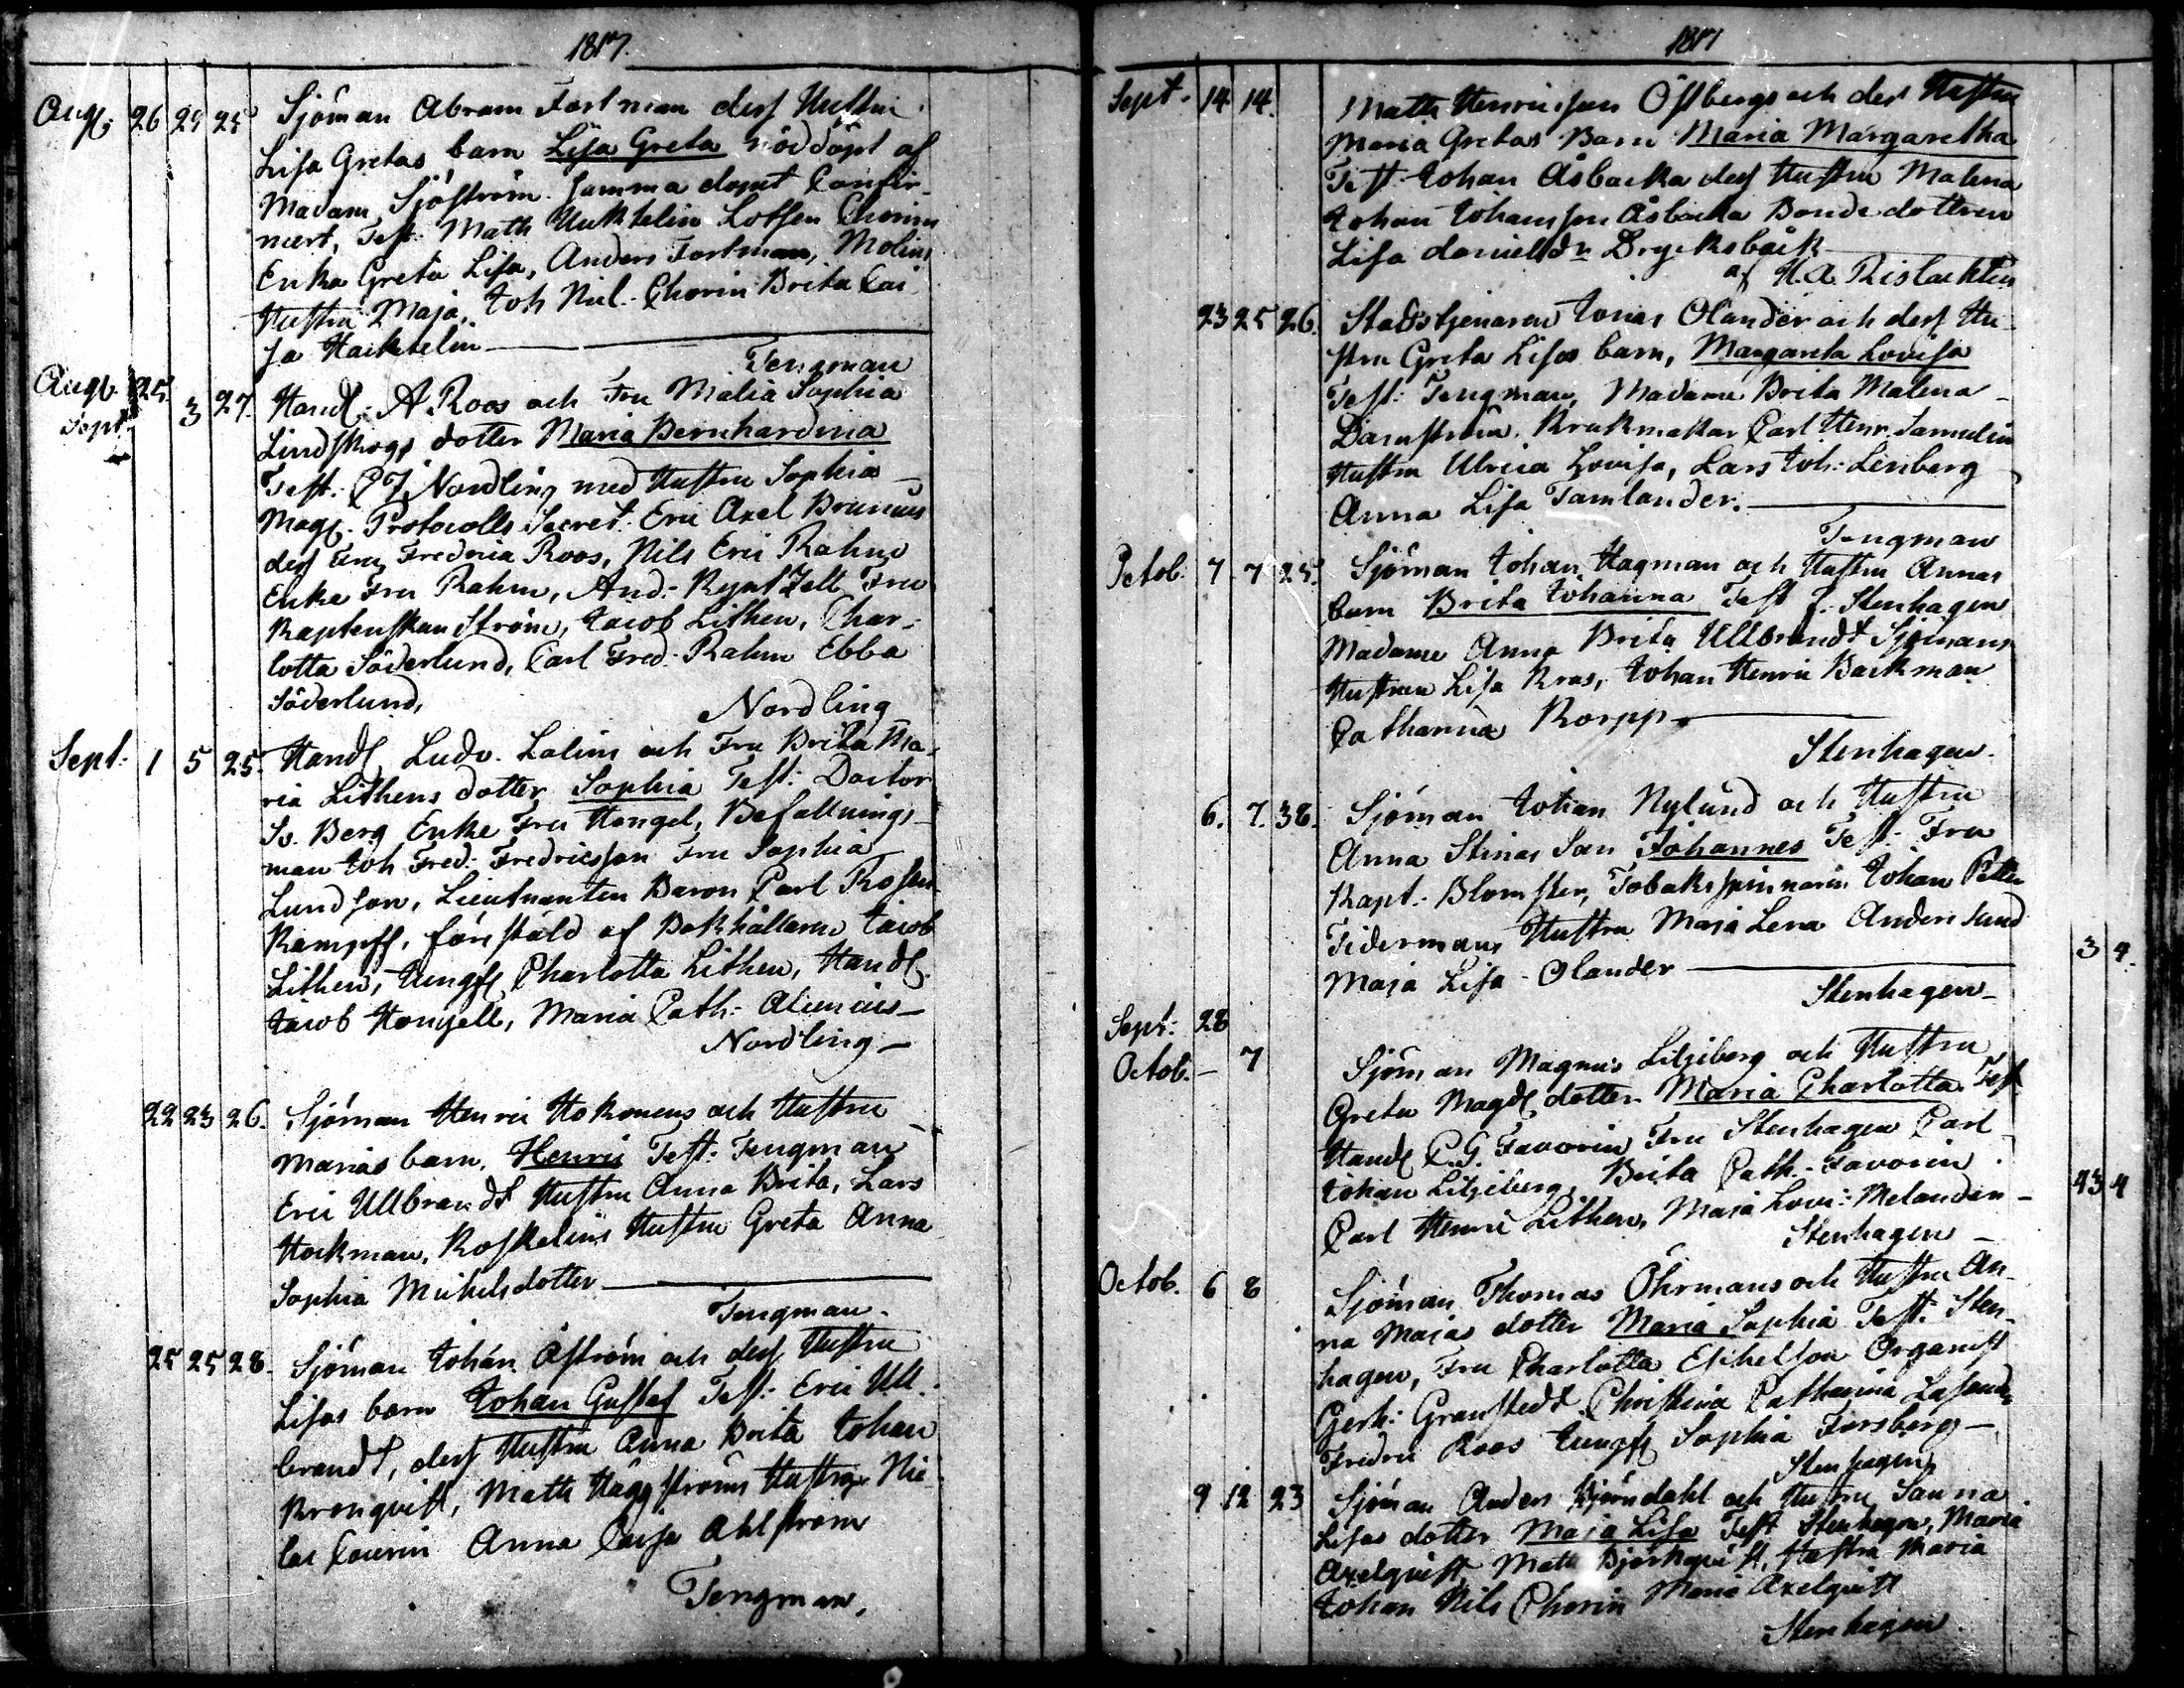 1817.
Aug. 26 29 25 Sjöman Abram Fortman dess Hustru
Lisa Gretas barn Lisa Greta nöddöpt af
Madam Sjöström samma dopet Confir-
mert, Test. Math Lotsen Chorins
Enka Greta Lisa, Anders Fortman, Molins
Hustru Maja, Joh Nil. Chorin Brita Cai
sa
Tengman
Aug. 25. 3 27. Handl. A Roos och Fru Maria Sophia
Sept. Lindskogs dotter Maria Bernhardina
Test. C J Nordling med Hustru Sophia
Mag. Protocolls Secret. Eric Axel Brunnius
dess Fru Fredrica Roos, Nils Eric Rahms
Enka Fru Rahm, And. Fru
Kaptenskan Ström, Jacob Lithen, Char-
lotta Söderlund, Carl Fred. Rahm Ebba
Söderlund,
Nordling
Sept. 1 5 25. Handl. Ludv. Lalins och Fru Brita Ma-
ria Lithens dotter Sophia Test: Doctor
So. Berg Enke Fru Hongel, Befallnings-
man Joh Fred. Fredricsson Fru Sophia
Lundson, Lieutnanten Baron Carl Rosen
Kampff, föreståld af Bokhållaren Jacob
Lithen, Jungf. Charlotta Lithen, Handl.
Jacob Hongell, Maria Cath. Alcenius
Nordling
22 23 26. Sjöman Henric Hokonens och Hustru
Marias barn, Henric Test: Tengman
Eric Ullbrandt Hustru Anna Brita, Lars
Hockman, Koskelins Hustru Greta Anna
Sophia Michelsdotter
Tengman.
25 25 28. Sjöman Johan Åström och dess Hustru
Lisas barn Johan Gustaf Test: Eric Ull-
brandt, dess Hustru Anna Brita Johan
Kronqvist, Math Häggströms Hustru Nic
las Caurin Anna Caisa Ahlström
Tengman,
1817
Sept. 14 14. Math Henricsson Östbergs och dess Hustru
Maria Gretas Barn Maria Margaretha
Test. Johan Åsbacka dess Hustru Malena
Johan Johansson Åsbacka Bonde dottren
Lisa danielsdr Drycksbäck
af H. A. Rislachten
23 25 26. Stadstjenaren Jonas Olander och dess Hu-
stru Greta Lisas barn, Margareta Lovisa
Test: Tengman, Madame Brita Malena
Damström, Krukmakar Carl Henr. Samuelin
Hustru Ulrica Lovisa, Lars Joh. Lenberg
Anna Lisa Tamlander.
Tengman
Octob. 7 7 25. Sjöman Johan Hagman och Hustru Annas
barn Brita Johanna Test J. Stenhagen
Madame Anna Brita Ullbrandt Sjömans
Hustrun Lisa Kras, Johan Henric Backman
Catharina Korpp
Stenhagen.
6. 7. 38. Sjöman Johan Nylund och Hustru
Anna Stinas Son Johannes Test: Fru
Kapt. Blomster, Tobaksspinnaren Johan Petter
Tidermans Hustru Maja Lena Anders Sund
3 4.
Maja Lisa Olander
Stenhagen
Sept: 28
Octob. - 7 Sjöman Magnus Liljeberg och Hustru
Greta Magd. dotter Maria Charlotta Test
Handl. C. G. Favorin Fru Stenhagen Carl
Johan Liljeberg, Brita Cath. Favorin
43 4
Carl Henric Lithen, Maja Lovi: Melander
Stenhagen
Octob. 6 8 Sjöman Thomas Öhrmans och Hustru An-
na Majas dotter Maria Sophia Test: Sten-
hagen, Fru Charlotta Eschelson Organist
Gerh: Granstedt Christina Catharina
Fredric Roos Jungf. Sophia Forsberg
Stenhagen
9 12 23 Sjöman Anders Björndahl och Hustru Sanna
Lisas dotter Maja Lisa Test Stenhagen, Maria
Axelqvist, Math Björkqvist, Hustru Maria
Johan Nils Chorin Maria Axelqvist
Stenhagen